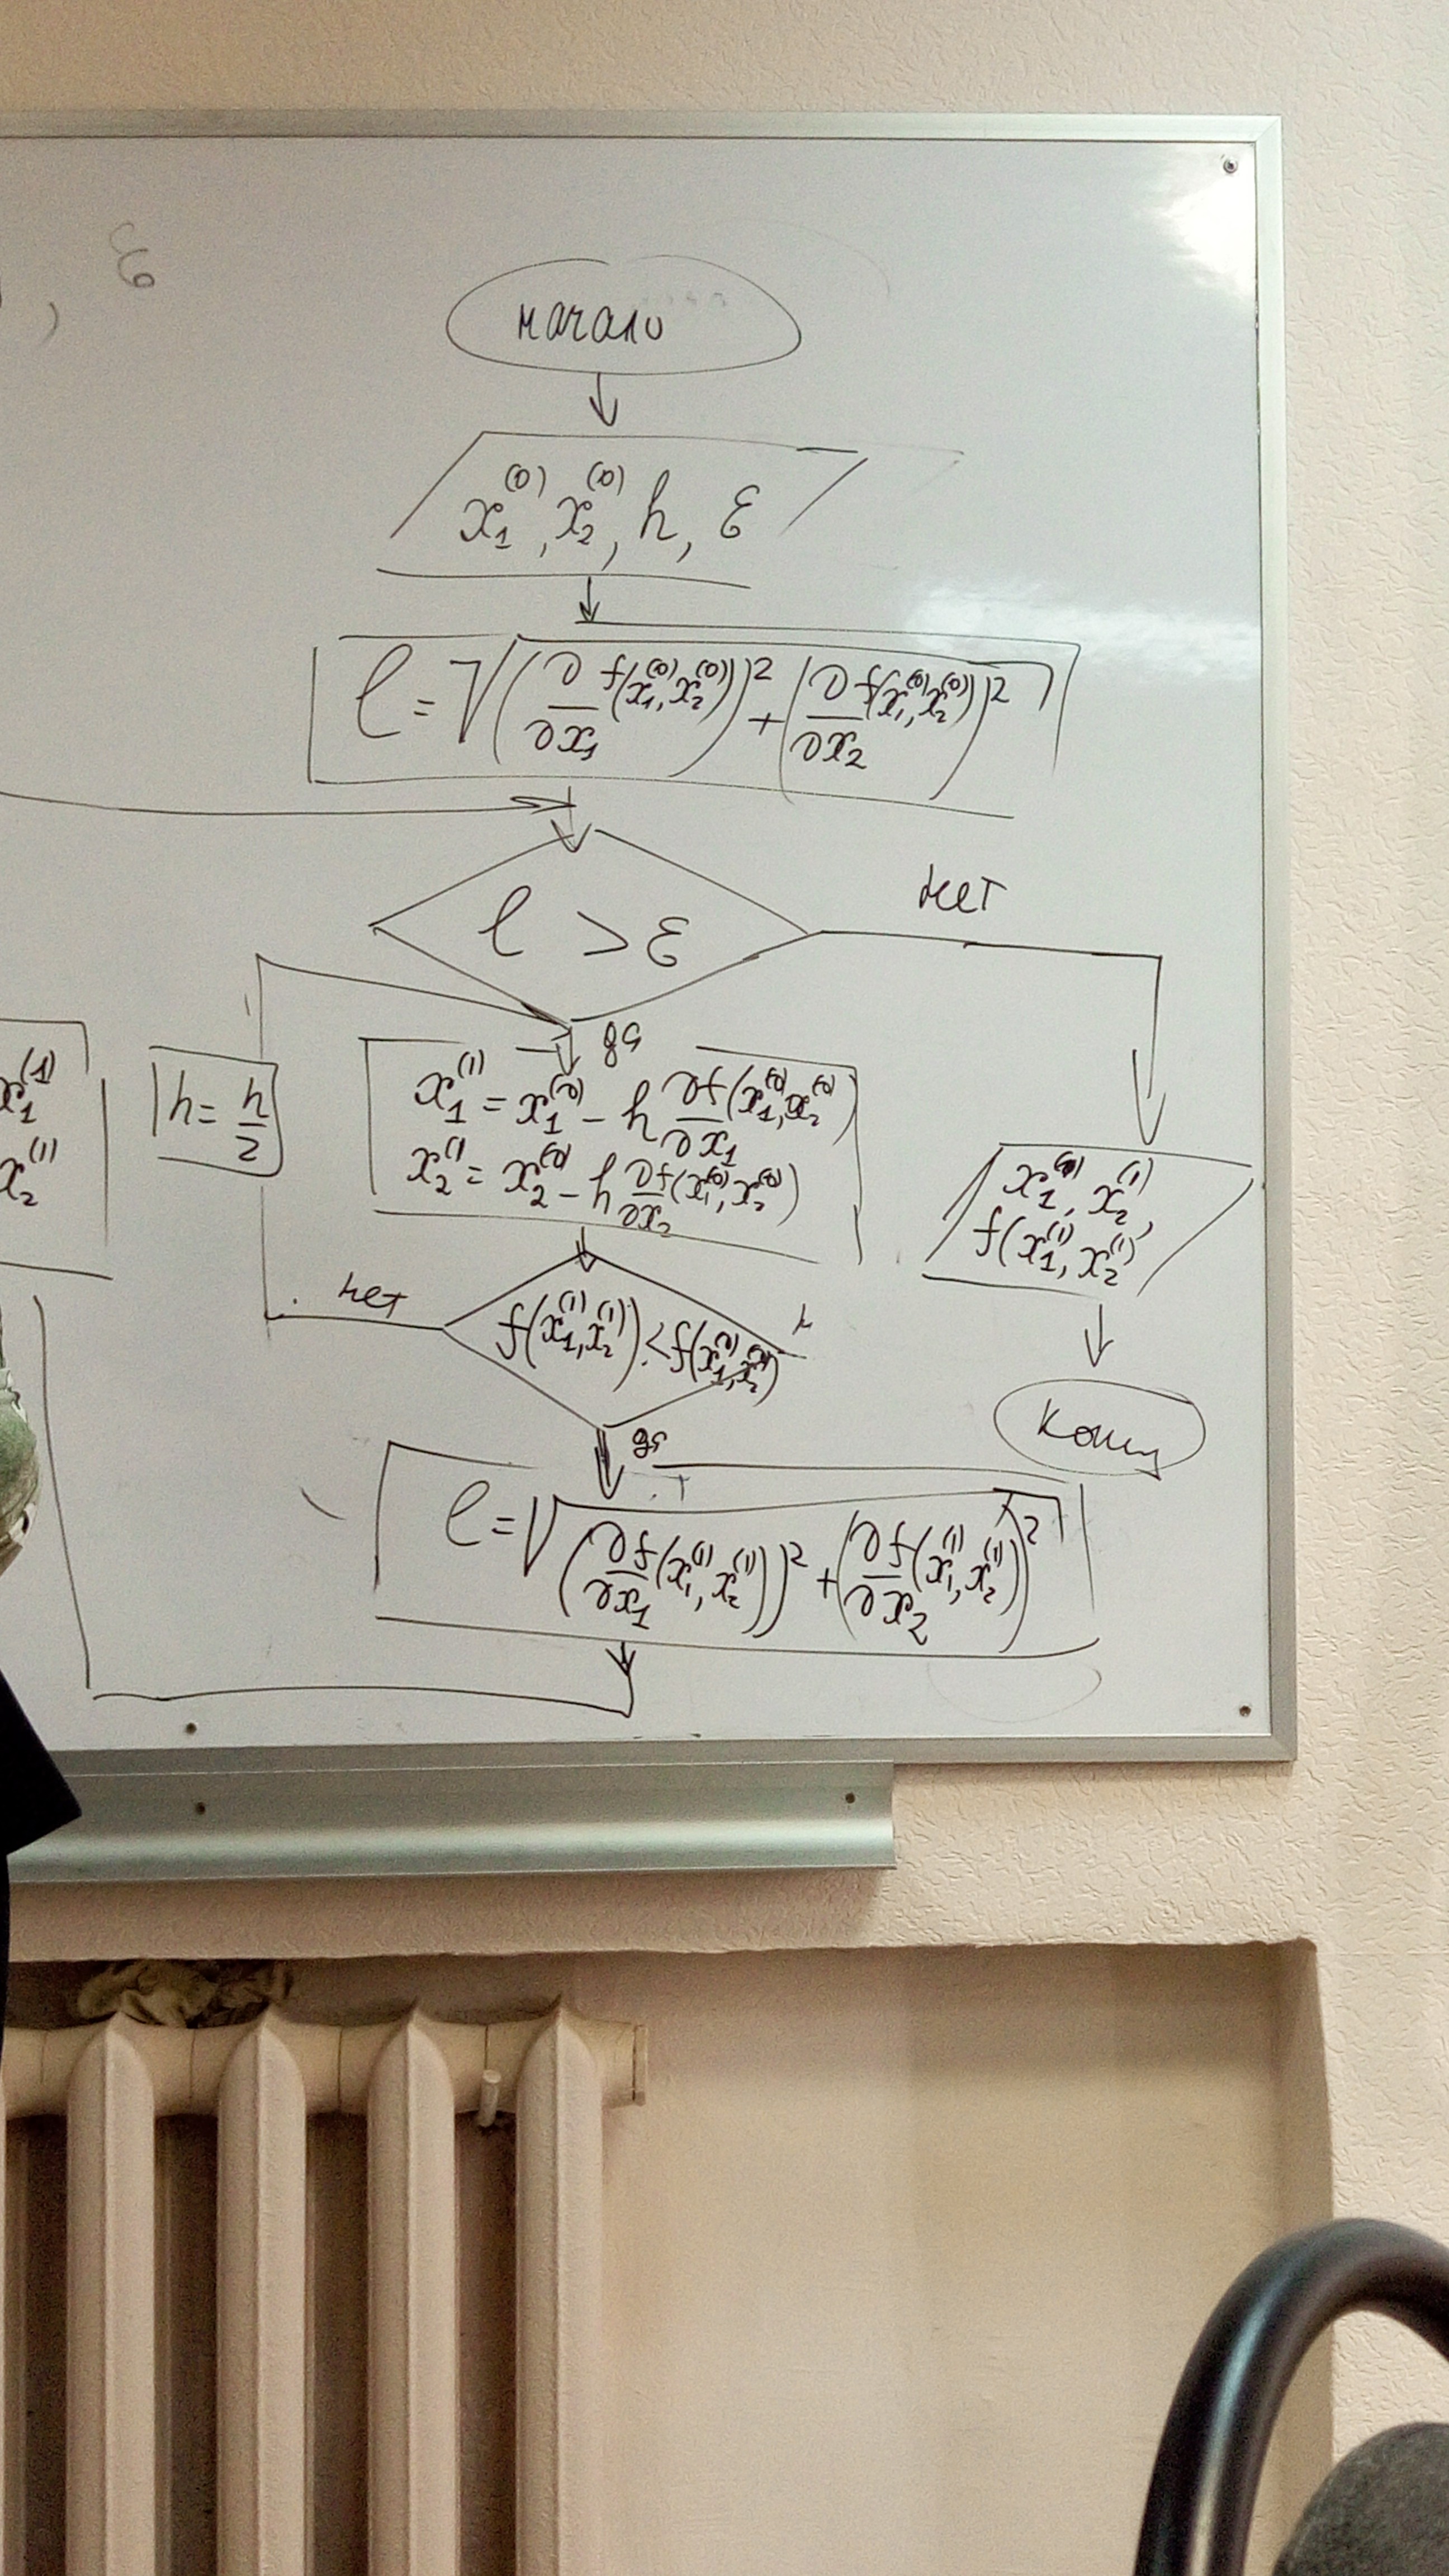 ε
начало
x₁⁽⁰⁾, x₂⁽⁰⁾, h, ε
l = √((∂/∂x₁ f(x₁⁽⁰⁾, x₂⁽⁰⁾))² + (∂/∂x₂ f(x₁⁽⁰⁾, x₂⁽⁰⁾))²)
l > ε
нет
да
x₁⁽¹⁾ = x₁⁽⁰⁾ - h ∂f/∂x₁ (x₁⁽⁰⁾, x₂⁽⁰⁾)
x₂⁽¹⁾ = x₂⁽⁰⁾ - h ∂f/∂x₂ (x₁⁽⁰⁾, x₂⁽⁰⁾)
h = h/2
x₁⁽¹⁾
x₂⁽¹⁾
x₁⁽¹⁾, x₂⁽¹⁾,
f(x₁⁽¹⁾, x₂⁽¹⁾)
нет
f(x₁⁽¹⁾, x₂⁽¹⁾) < f(x₁⁽⁰⁾, x₂⁽⁰⁾)
да
конец
l = √((∂f/∂x₁ (x₁⁽¹⁾, x₂⁽¹⁾))² + (∂f/∂x₂ (x₁⁽¹⁾, x₂⁽¹⁾))²)